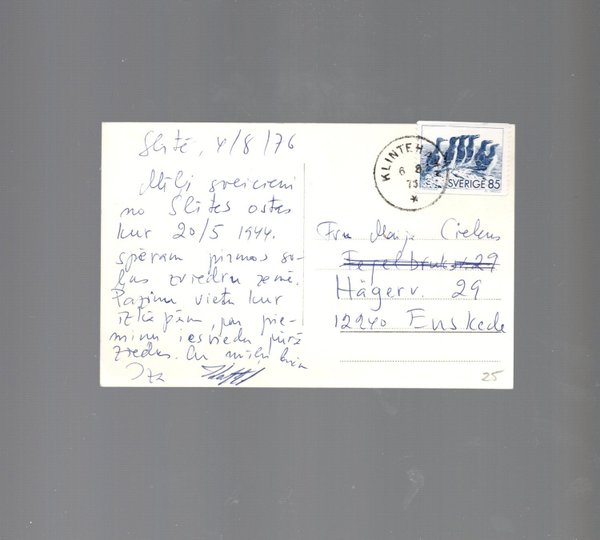 Slitē, 4/8/76
Mīļi sveicieni
no Slites ostas
kur 20/5 1944.
spēram pirmos so-
ļus zviedru zemē.
Pazinu vietu kur
izkāpām, par pie-
miņu iesviedu jūrā
KLINTEHAMN
6 8
SVERIGE 85
Fru Maija Cielens
Fegelbruksv. 29
Hägerv. 29
12240 Enskede
25